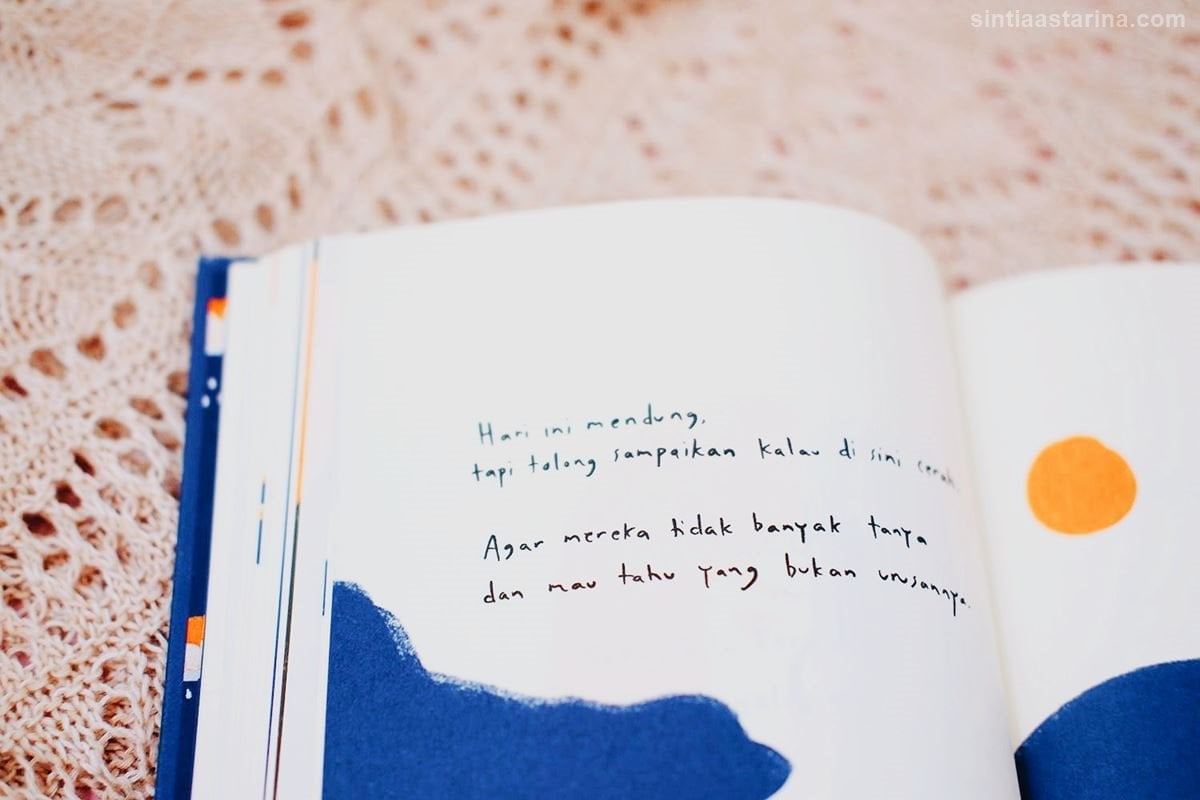 sintiaastarina.com
Hari ini mendung,
tapi tolong sampaikan kalau di sini cerah.
Agar mereka tidak banyak tanya
dan mau tahu yang bukan urusannya.